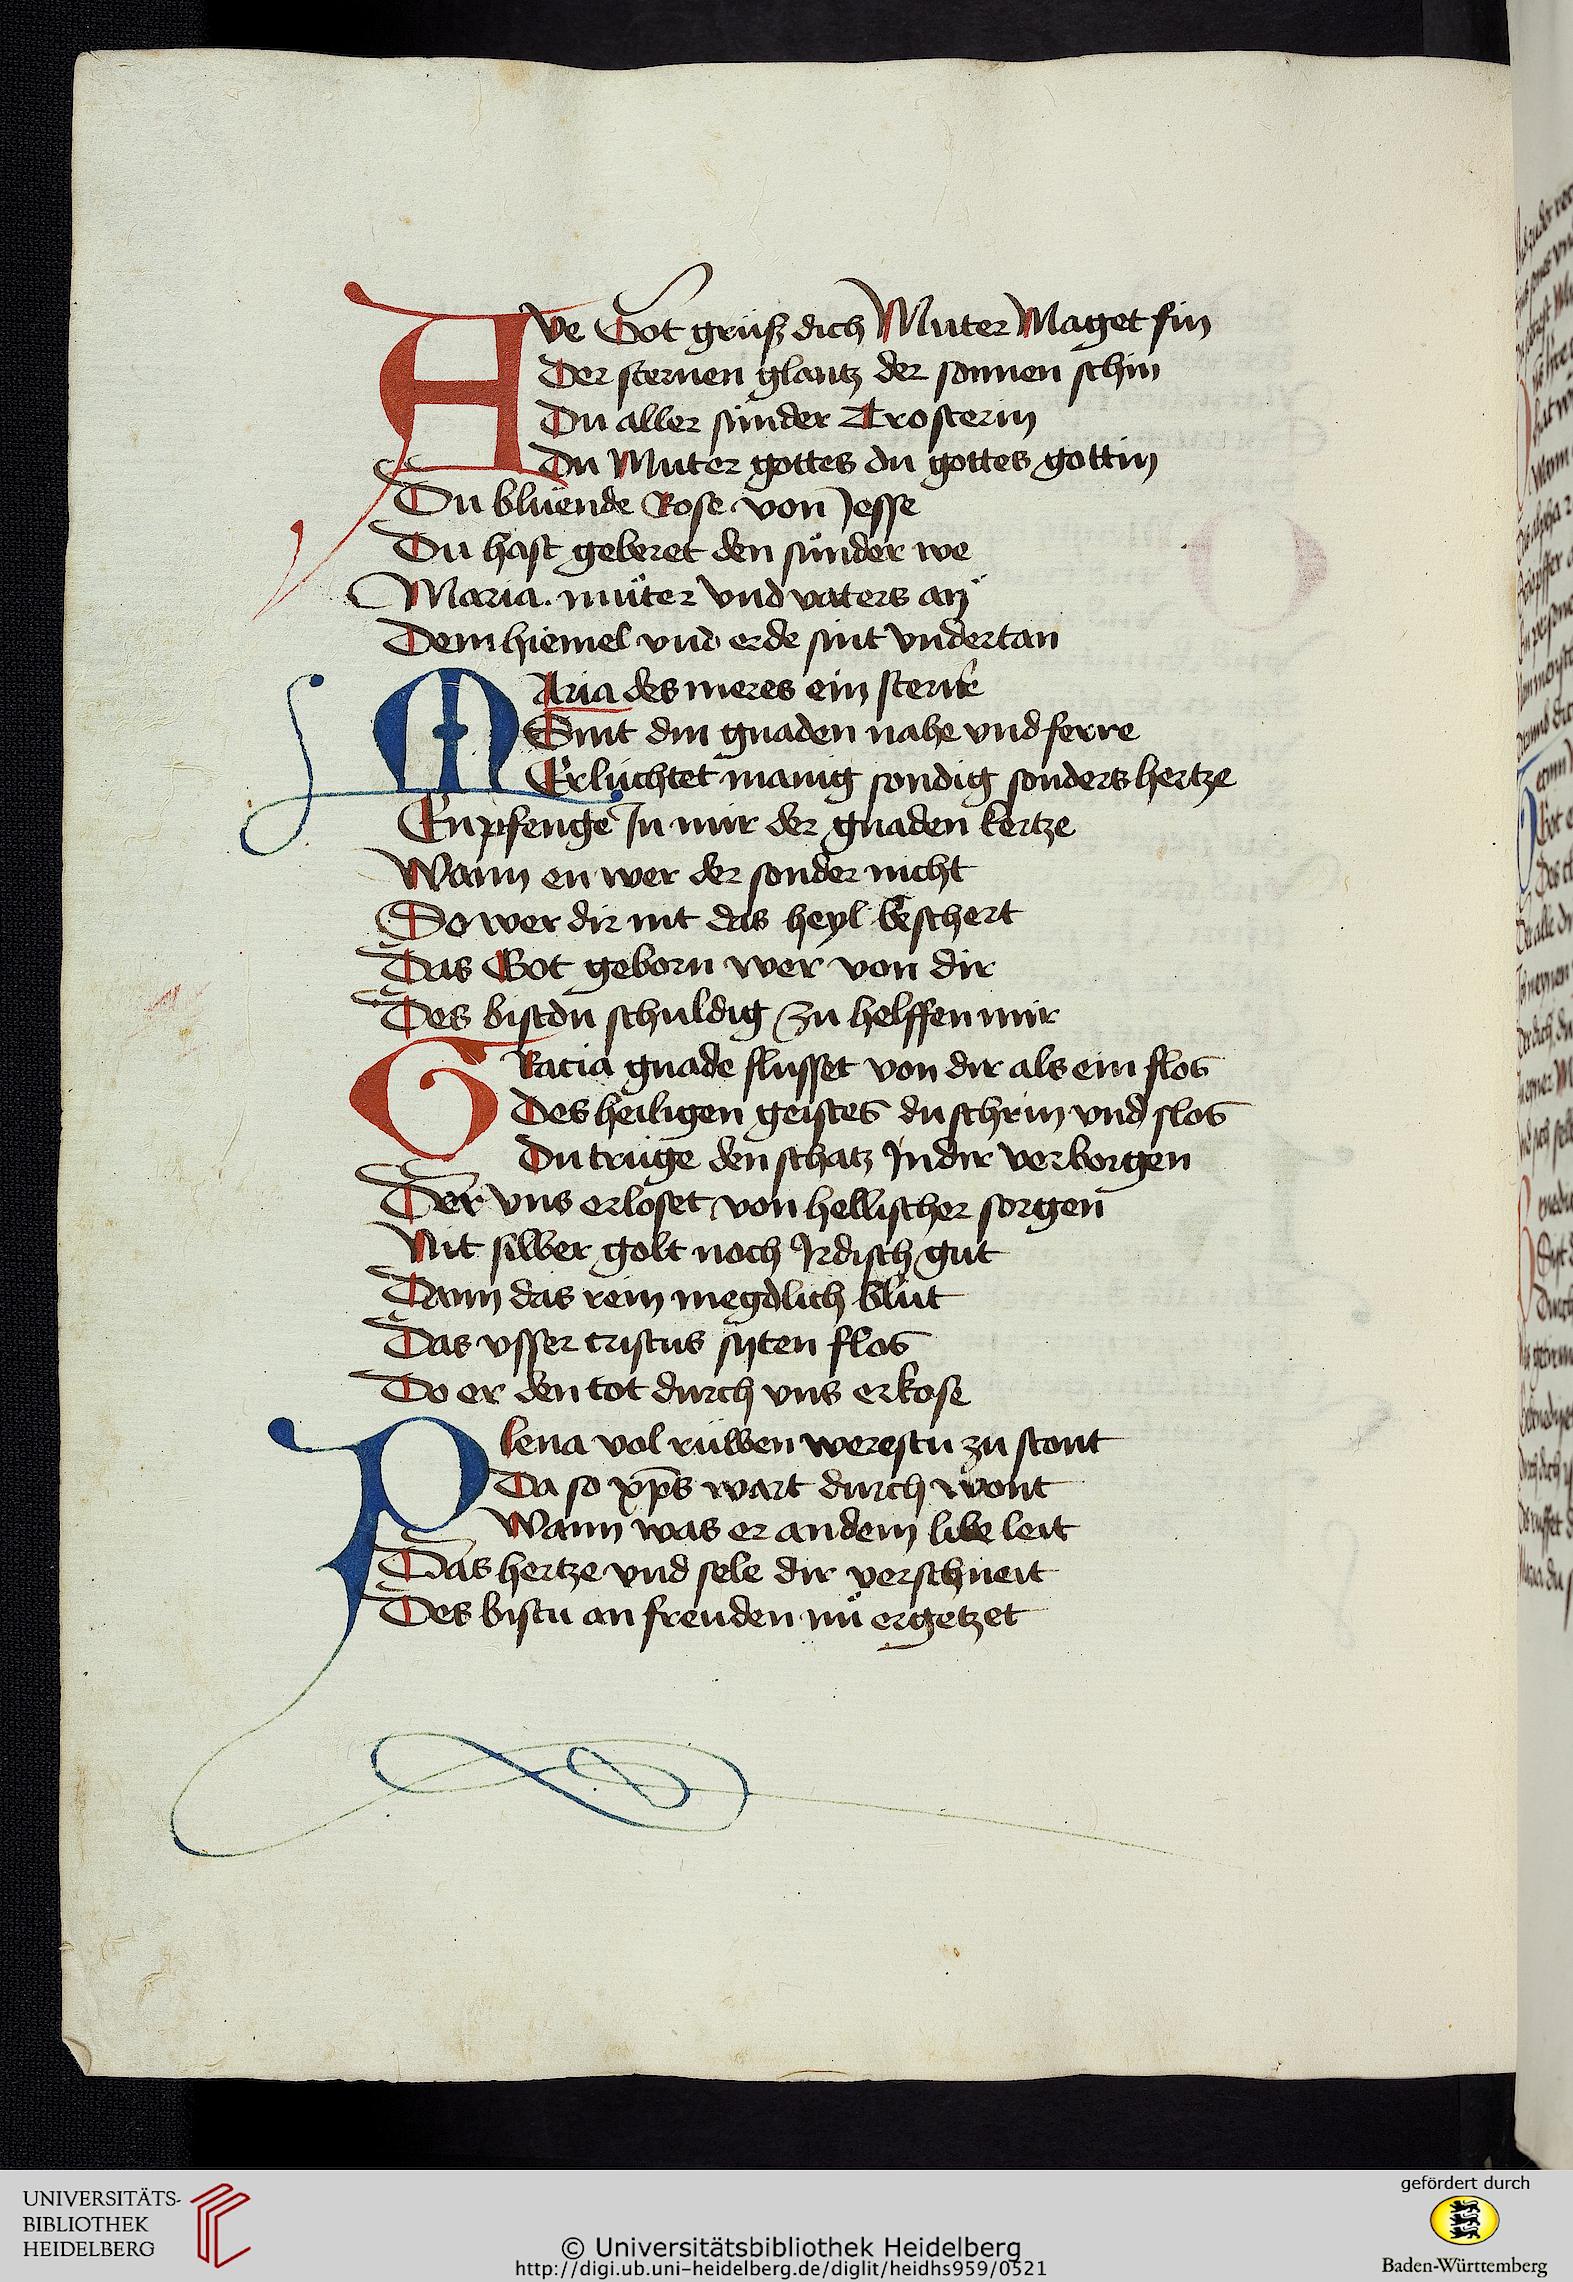 Ave Got grüß dich Muter Maget fin
Der sternen glantz der sonnen schin
Du aller sünder Trosterin
Du Muter gottes du gottes gottin
Du blüende Rose von Jesse
Du hast geberet den sünder we
Maria. müter vnd vaters an
Dem hiemel vnd erde sint vndertan
MAria des meres ein stern
Sint din gnaden nahe vnd ferre
Erlüchtet manig sondig sonders hertze
Enpfenge In mir der gnaden kertze
Wann en wer der sonder nicht
So wer dir nit das heyl beschert
Das Got geborn wer von dir
Des bistdu schuldig zu helffen mir
GRacia gnade flusset von dir als ein flos
Des heiligen geistes du schrin vnd slos
Du trüge den schatz Jn dir verborgen
Der vns erloset von hellischer sorgen
Nit silber golt noch Jrdisch gut
Dann das rein megdlich blüt
Das vsser cristus syten flos
Do er den tot durch vns erkose
Plena vol rüwen werestu zu stont
Da so xp̄s wart durch wont
Wann was er an dem libe leit
Das hertze vnd sele dir verschneit
Des bistu an freuden nü ergetzet
UNIVERSITÄTS-
BIBLIOTHEK
HEIDELBERG
© Universitätsbibliothek Heidelberg
http://digi.ub.uni-heidelberg.de/diglit/heidhs959/0521
gefördert durch
Baden-Württemberg